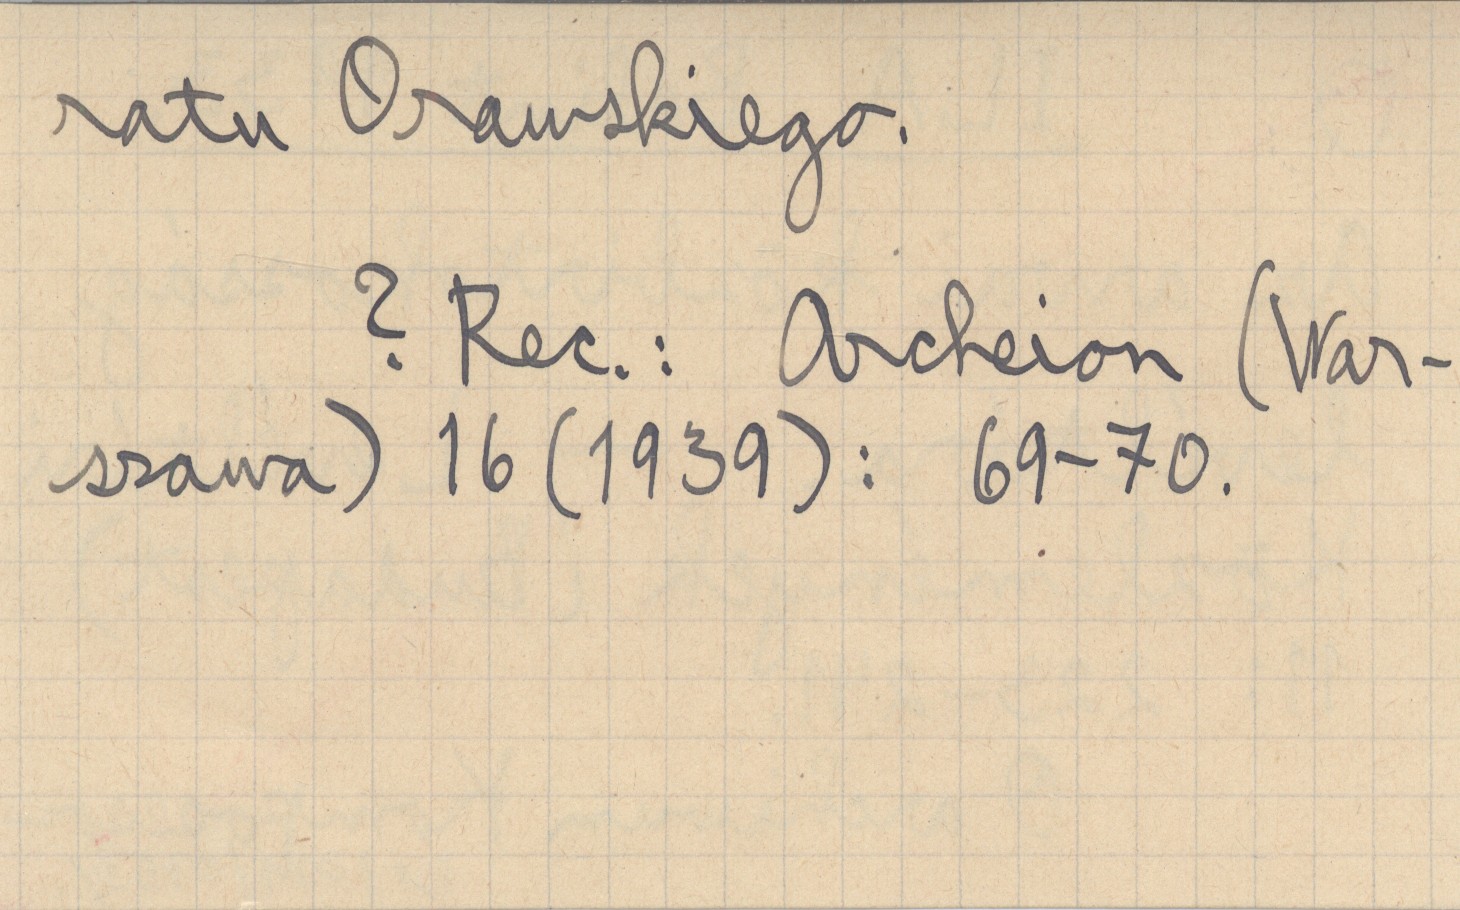 ratu Orawskiego.
? Rec.: Archeion (War-
szawa) 16 (1939): 69-70.